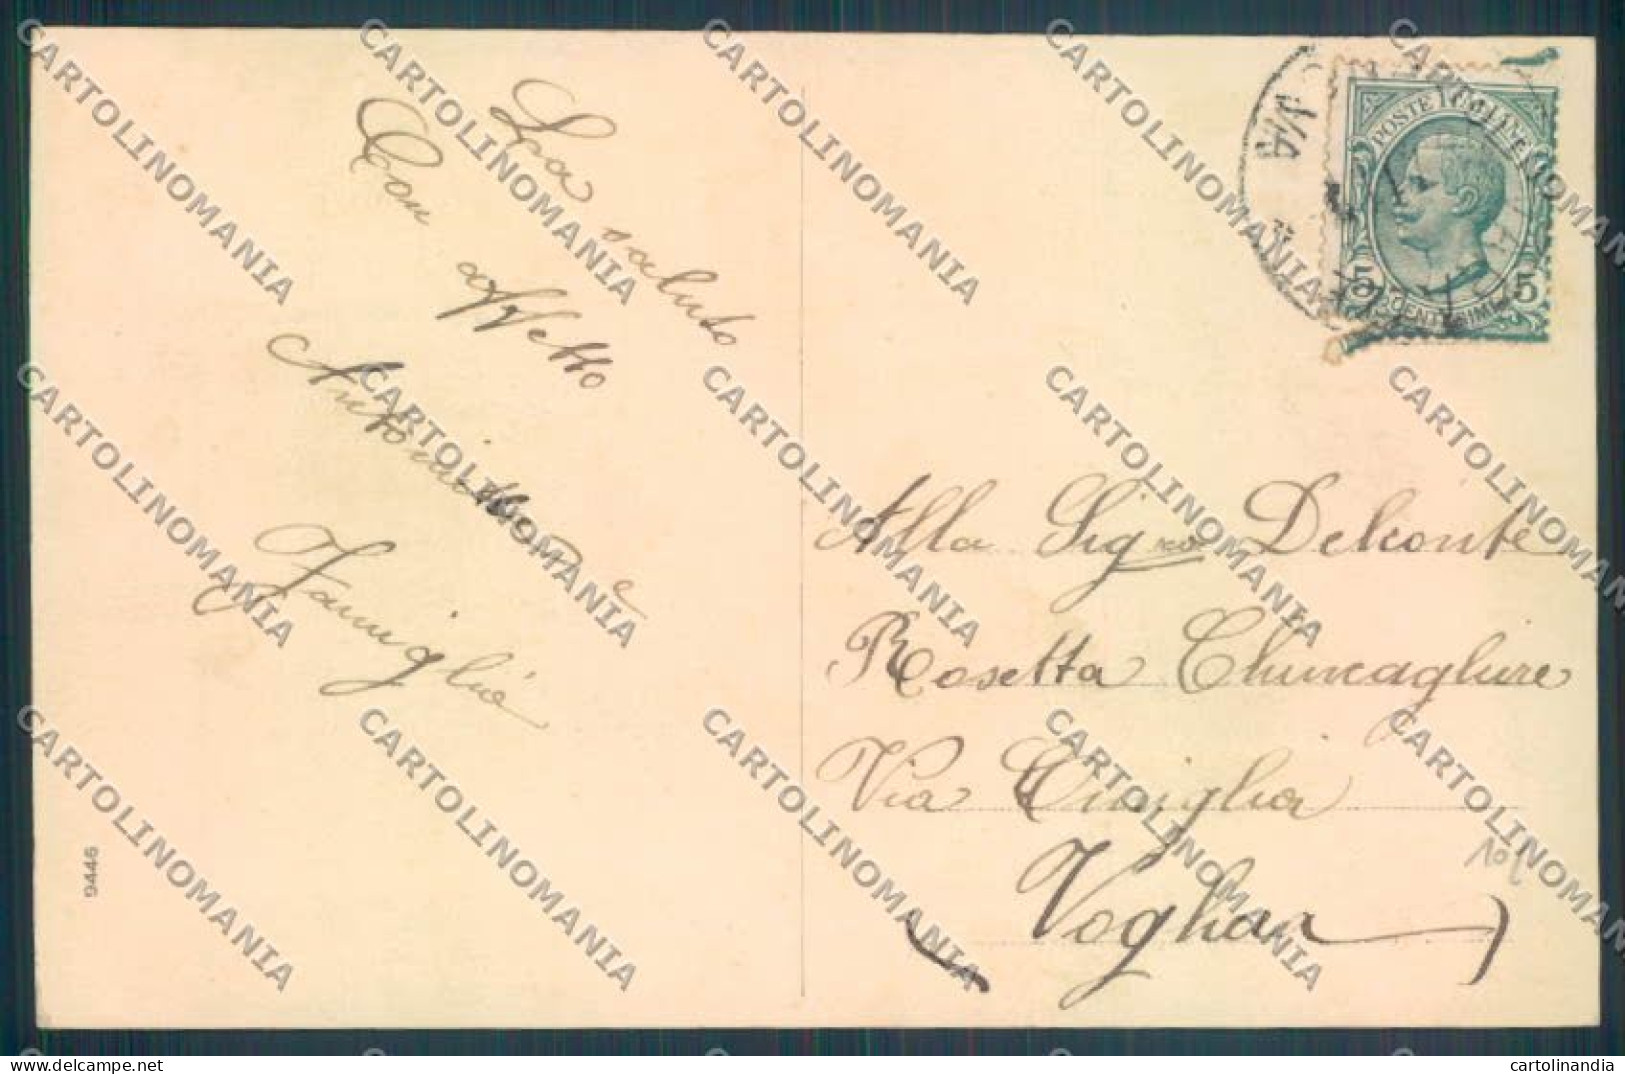 La saluto
Con affetto
Antonietta e
Famiglia
9446
VA
POSTE ITALIANE
5 CENTESIMI 5
Alla Sig.ra Delconte
Rosetta
Via Emiglia
Voghera
CARTOLINOMANIA
cartolinandia